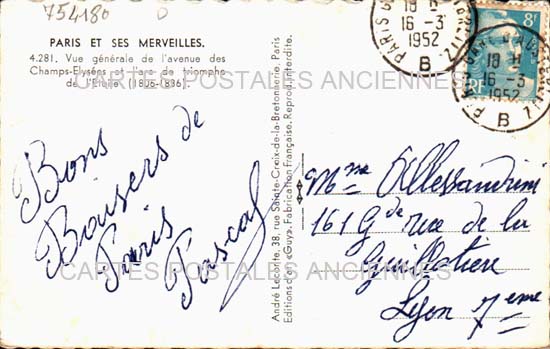 754180
PARIS ET SES MERVEILLES.
4.281. Vue générale de l'avenue des
Champs-Elysées et l'arc de triomphe
de l'Etoile (1806-1836).
Bons
Baisers de
Paris
Pascal
André Leconte, 38, rue Sainte-Croix-de-la-Bretonnerie, Paris
Editions d'art «Guy». Fabrication Française. Reprod. interdite.
8F
RF
16-3
1952
B
PARIS
16-3
1952
B
Mme Allessandrini
161 Gde rue de la
Guillotière
Lyon 7eme
CARTES POSTALES ANCIENNES
CARTES POSTALES ANCIENNES